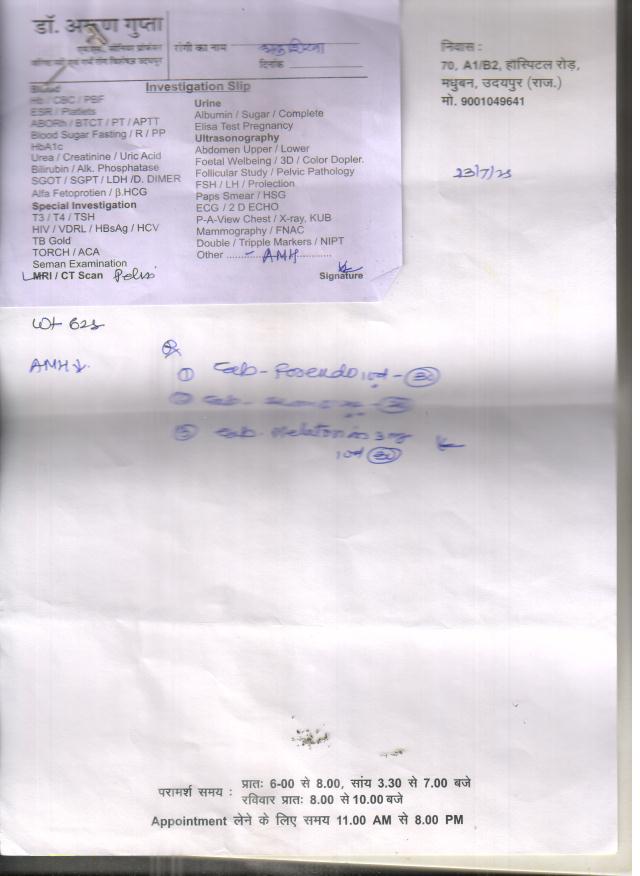 डॉ. अरूण गुप्ता
रोगी का नाम
दिनांक
Investigation Slip
Blood
Hb / CBC / PBF
ESR / Platlets
ABORh / BTCT / PT / APTT
Blood Sugar Fasting / R / PP
HbA1c
Urea / Creatinine / Uric Acid
Bilirubin / Alk. Phosphatase
SGOT / SGPT / LDH /D. DIMER
Alfa Fetoprotien / β.HCG
Special Investigation
T3 / T4 / TSH
HIV / VDRL / HBsAg / HCV
TB Gold
TORCH / ACA
Seman Examination
MRI / CT Scan Pelvis
Urine
Albumin / Sugar / Complete
Elisa Test Pregnancy
Ultrasonography
Abdomen Upper / Lower
Foetal Welbeing / 3D / Color Dopler.
Follicular Study / Pelvic Pathology
FSH / LH / Prolection
Paps Smear / HSG
ECG / 2 D ECHO
P-A-View Chest / X-ray, KUB
Mammography / FNAC
Double / Tripple Markers / NIPT
Other ..... - AMH ............
Signature
निवास :
70, A1/B2, हॉस्पिटल रोड़,
मधुबन, उदयपुर (राज.)
मो. 9001049641
23/7/25
AMH↓
Rx
① Tab-
② Tab-
③ Tab- Melatonin 3mg
परामर्श समय : प्रातः 6-00 से 8.00, सांय 3.30 से 7.00 बजे
रविवार प्रातः 8.00 से 10.00 बजे
Appointment लेने के लिए समय 11.00 AM से 8.00 PM